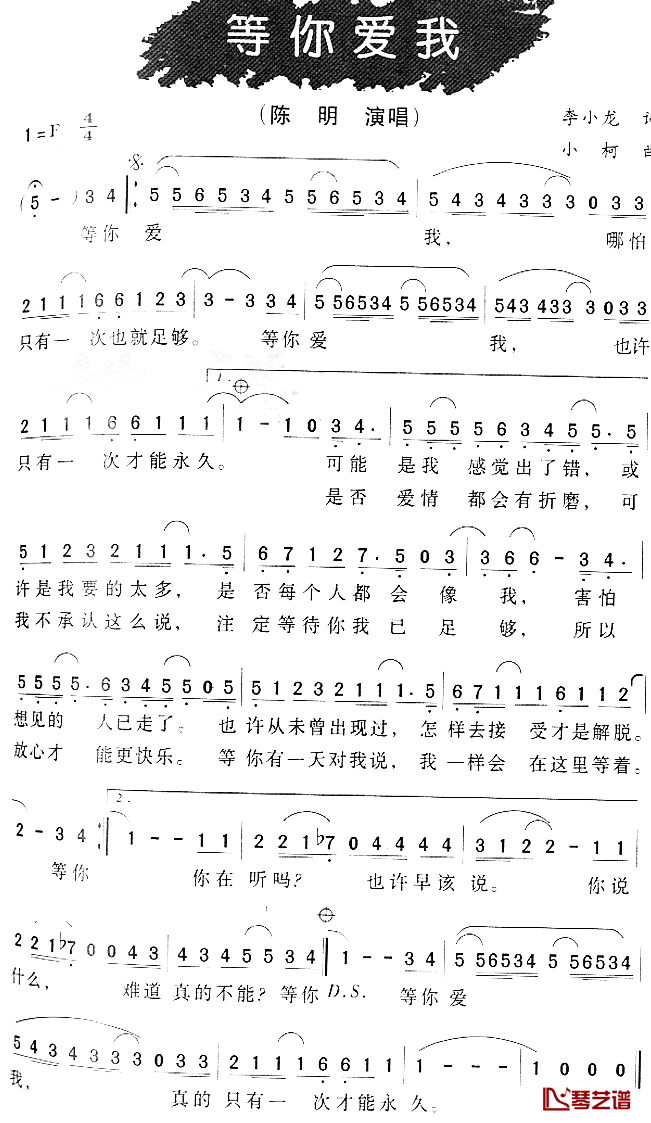 等你爱我
（陈 明 演唱）
李小龙
1=F 4/4
小 柯
(5 - )3 4 5 5 5 6 5 3 4 5 5 5 6 5 3 4 5 4 3 4 3 3 3 0 3 3
等你 爱 我， 哪怕
2 1 1 1 6 6 1 2 3 3 - 3 3 4 5 5 6 5 3 4 5 5 6 5 3 4 5 4 3 4 3 3 3 0 3 3
只有一 次也就足够。 等你 爱 我， 也许
1.
2 1 1 1 6 6 1 1 1 1 - 1 0 3 4. 5 5 5 5 6 3 4 5 5. 5
只有一 次才能永久。 可能 是我 感觉出了错，或
是否 爱情 都会有折磨，可
5 1 2 3 2 1 1 1 1. 5 6 7 1 2 7. 5 0 3 3 6 6 - 3 4.
许是我要的太多， 是 否每个人都 会 像 我， 害怕
我不承认这么说， 注 定等待你我 已 足 够， 所以
5 5 5 5. 6 3 4 5 5 0 5 5 1 2 3 2 1 1 1. 5 6 7 1 1 1 6 1 1 2
想见的 人已走了。 也 许从未曾出现过， 怎 样去接 受才是解脱。
放心才 能更快乐。 等 你有一天对我说， 我 一样会 在这里等着。
2.
2 - 3 4 1 - - 1 1 2 2 1 ♭7 0 4 4 4 4 3 1 2 2 - 1 1
等你 你在 听吗？ 也许早该 说。 你说
2 2 1 ♭7 0 0 4 3 4 3 4 5 5 3 4 1 - - 3 4 5 5 6 5 3 4 5 5 6 5 3 4
什么， 难道 真的不能？等你 D.S. 等你 爱
5 4 3 4 3 3 3 0 3 3 2 1 1 1 6 6 1 1 1 - - - 1 0 0 0
我， 真的 只有一 次才能永 久。
琴艺谱